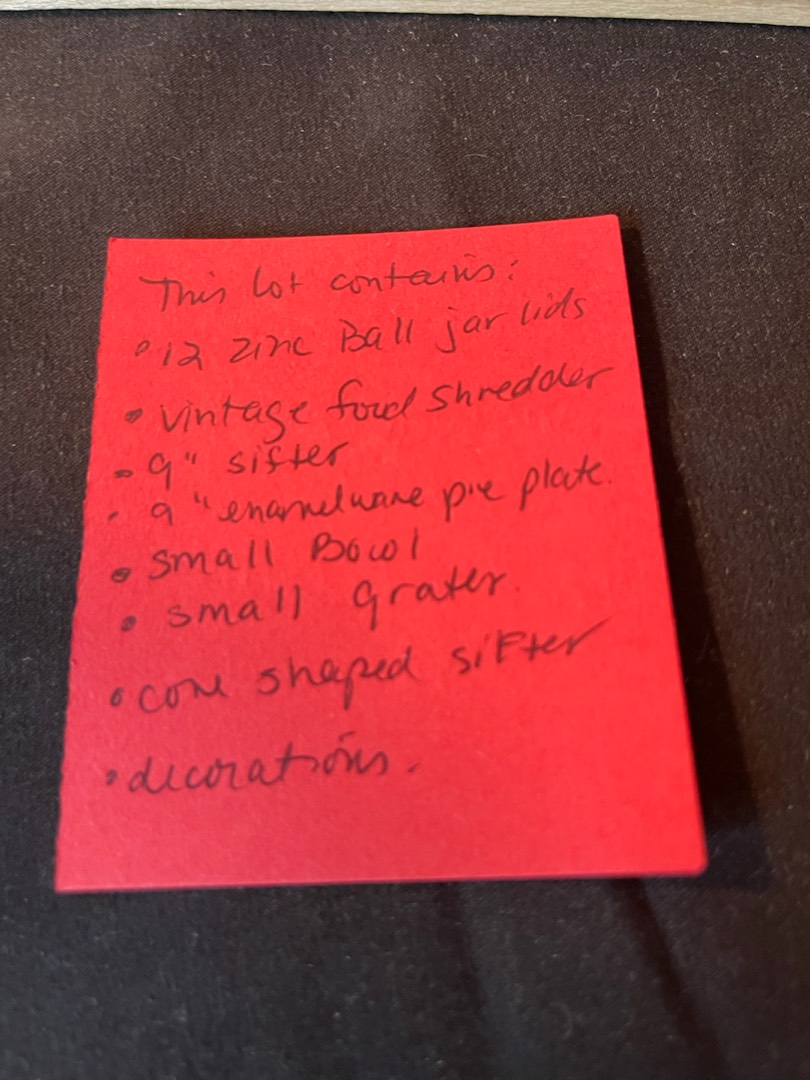 This lot contains:
• 12 zinc Ball jar lids
• vintage food shredder
• 9" sifter
• 9" enamelware pie plate.
• small Bowl
• small grater.
• cone shaped sifter
• decorations.